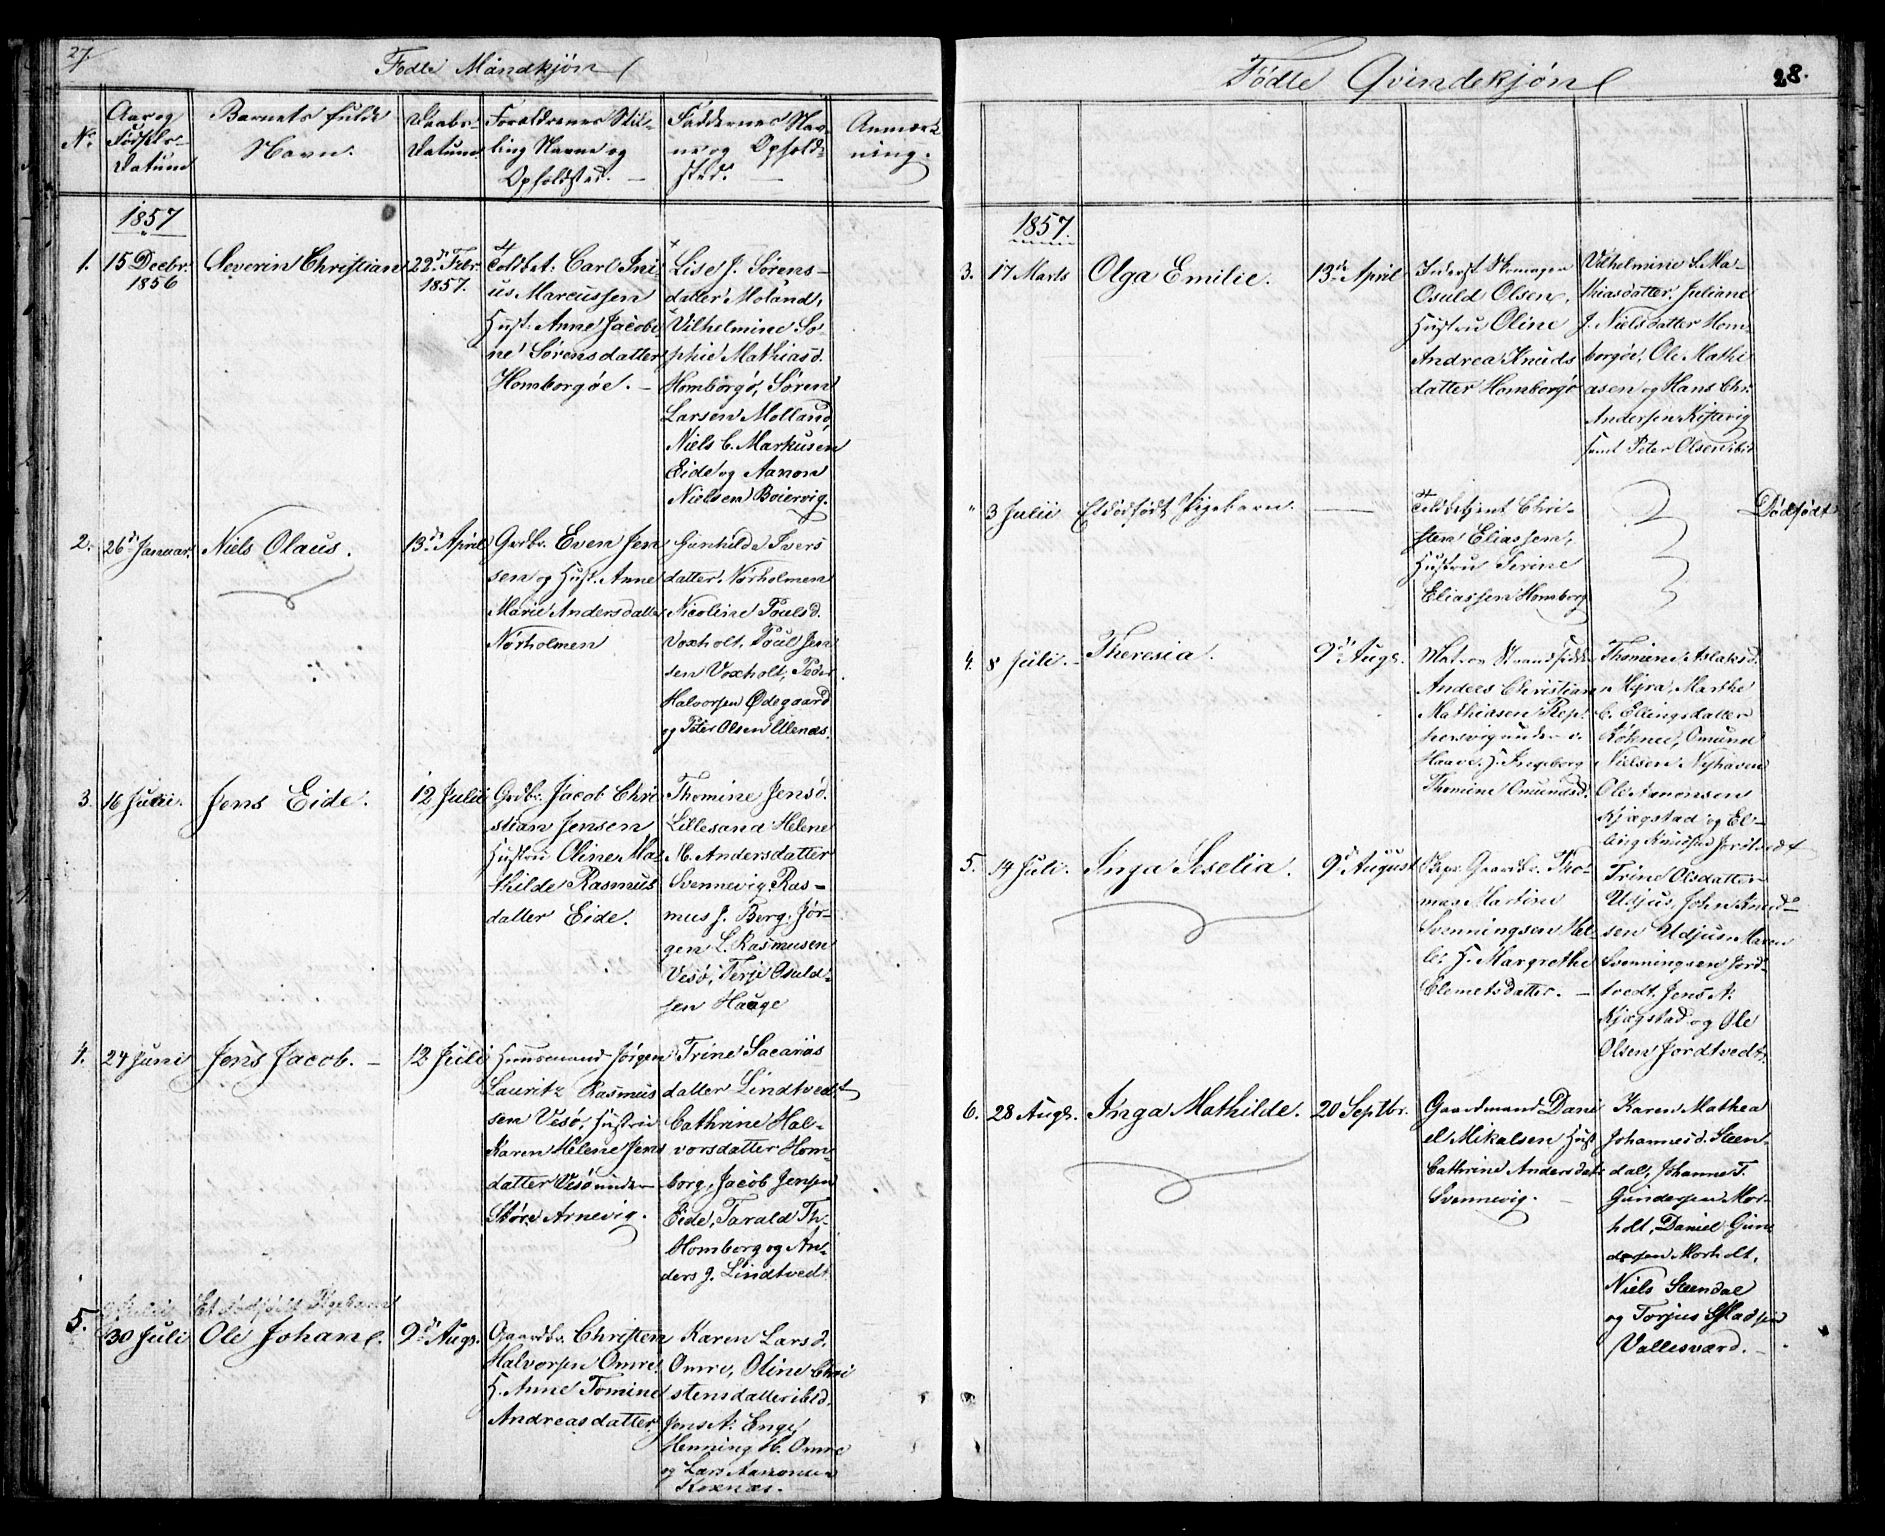 27.
Fødte Mandkjøn
No
Aar og
Fødsels-
Datum
Barnets fulde
Navn.
Daabs-
Datum
Forældrenes Stil-
ling Navne og
Opholdsted. -
Faddernes Nav-
ne og Ophold-
sted. -
Anmærk
ning.
1857
1. 15 Decbr.
1856
Severin Christian
22de Febr.
1857.
Toldbet: Carl Ini-
us Marcussen
Hust: Anne Jacobi-
ne Sørensdatter
Homborgøe. -
Lise J. Sørens-
datter Moland,
Vilhelmine So-
phie Mathiasd.
Homborgø, Søren
Larsen Molland,
Niels C. Markusen
Eide og Aanon
Nielsen Boiervig.
2. 26de Januar.
Niels Olaus.
13de April
Grdbr. Even Jen
sen og Hust. Anne
Marie Andersdatter
Nørholmen
Gunhilde Ivers
datter Nørholmen
Nicoline Poulsd.
Voxholt, Poul Jen
sen Voxholt, Peder
Halvorsen Ødegaard
og Peter Olsen Ulenæs.
3. 16 Juni.
Jens Eide.
12 Julii
Grdbr. Jacob Chri
stian Jensen
Hustru Oline Ma
thilde Rasmus
datter Eide.
Thomine Jensd.
Lillesand Helene
M. Andersdatter
Svennevig, Ras-
mus J. Berg, Jør-
gen L. Rasmusen
Vesø, Terje Osuld-
sen Hauge
4. 24 Juni
Jens Jacob. -
12 Juli
Huusmand Jørgen
Lauritz Rasmus
sen Vesø, Hustru
Karen Helene Jens
datter Vesø under
Store Arnevig.
Trine Sacarias
datter Lindtvedt
Cathrine Hal-
vorsdatter Hom-
borg, Jacob Jensen
Eide, Tarald Th-
Homborg og An-
ders J. Lindtvedt
Et dødfødt Pigebarn
5. 30 Juli
Ole Johan.
9de Augs.
Gaardbr. Christen
Halvorsen Omre
H. Anne Tomine
Andreasdatter
Karen Larsd.
Omre, Oline Chri
stensdatter ibid.
Jens A. Enge,
Henning H. Omre
og Lars Aanonsen
Kexnæs.
28.
Fødte Qvindekjøn
1857.
3. 17 Marts
Olga Emilie.
13de April
Inderst Skomager
Osuld Olsen,
Hustru Oline
Andrea Knuds
datter Homborgø
Vilhelmine S. Ma-
thiasdatter, Juliane
J. Nielsdatter Hom-
borgøe, Ole Mathi
asen og Hans Chr.
Andersen Kistevig
samt Peter Olsen ibid
" 3 Julii
Et dødfødt Pigebarn.
Toldbetjent Chri-
sten Eliassen,
Hustru Sirine
Eliassen Homborg
Dødfødt
4. 8 Juli.
Theresia.
9de Augs.
Mat. og Strandsidder
Andres Christian
Mathiasen Rep-
persvig under
Haave, H. Ingeborg
Thomine Omundsd.
Thomine Aslaksd.
Mejra, Marthe
C. Ellingsdatter
Omund
Nielsen Nyhaven
Ole Aanonsen
Kjægstad og El-
ling Knudsen Jordtvedt
5. 14 Juli.
Inga Iselia.
9de August
Gaardbr. Tho-
mas Martin
Svenningsen
H. Margrethe
Clemetsdatter. -
Trine Olsdatter
Udjus, John Knud-
sen Udjus, Maren
Svenningsen Jord-
tvedt, Jens A.
Kjægstad og Ole
Olsen Jordtvedt.
6. 28 Augs.
Inga Mathilde.
20 Septbr.
Gaardmand Dani
el Mikalsen Hust
Cathrine Andersdat:
Svennevig. -
Karen Mathea
Johannesd. Steen-
dal, Johanne T.
Gundersen Mor-
holt, Daniel Gun
dersen Morholt,
Niels Steendal
og Torjus
Vallesværd. -